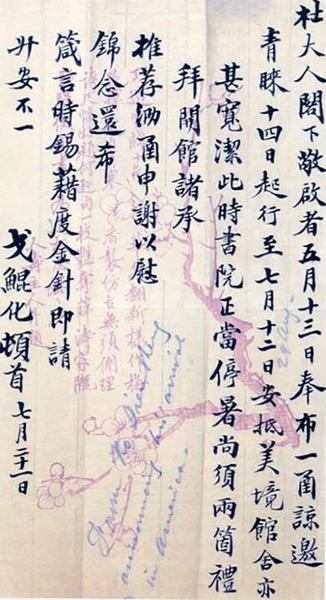 杜大人閣下敬啟者五月十三日奉布一函諒邀
青睞十四日起行至七月十二日安抵美境館舍亦
甚寬潔此時書院正當停暑尚須兩箇禮
拜開館諸承
推荐泐函申謝以慰
錦念還希
箴言時錫藉度金針即請
升安不一 戈鯤化頓首 七月二十一日
29 Aug.
From Ko
announcing his arrival
in America.